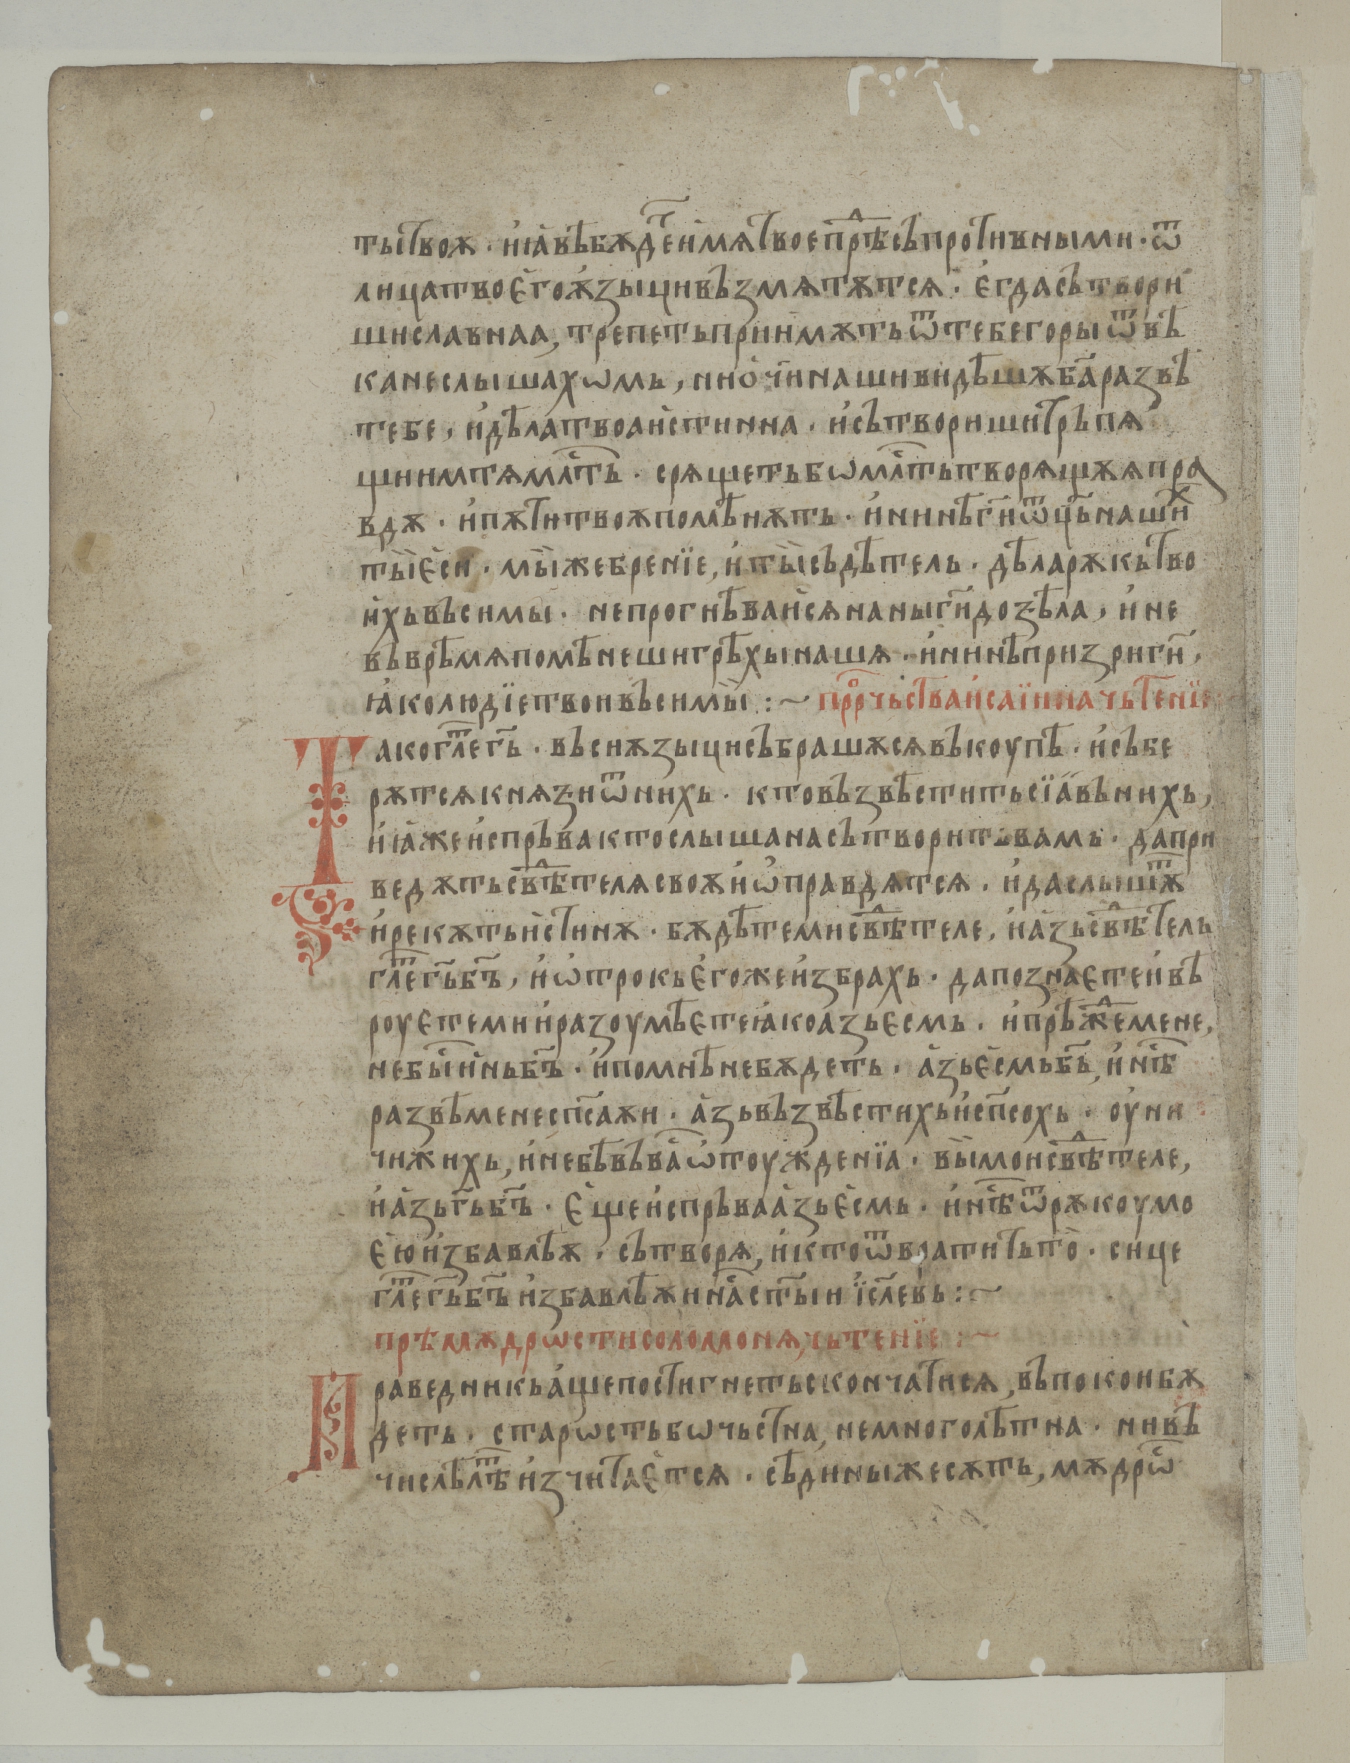 тытвоѫ · и҆ꙗ҆вѣбѫде҇и҆мѧтвоепрⷣѣсъпротивными · ѿ
лицатвоє҆гоѫ҆зыцивъзмѧтѫтсѧ · є҆гдасътвори
шиславнаа, трепетьприимѫтьѿтебегорыѿвѣ
канеслышахѡмь, ниѻчинашивидѣшѫба҃развѣ
тебе, и҆дѣлатвоаи҆стинна · и҆сътворишитръпѧ
щиимтѧмлⷭ҇ть · срѧщетьбѡмлⷭ҇тьтворѧщѫѧпра
вдѫ · и҆пѫтитвоѫпомѣнѫть · и҆нинѣги҃ѿц҃ьнашⷯи
тыє҆си · мыжебренїе, и҆тысъдѣтель · дѣларѫкьтво
и҆хьвьсимы · непрогнѣваисѧнаныги҃доѕѣла, и҆не
въврѣмѧпомѣнешигрѣхынашѧ · и҆нинѣпризриги҃,
ꙗ҆колюдїетвоивьсимы :~ прⷪ҇рчьстваи҆саїиначьтенїе
Такогл҃етг҃ь · вьсиѫзыцисъбрашѫсѧвъкоупѣ · и҆събе
рѫтсѧкнѧѕиѿнихь · ктовъзвѣститьсїꙗ҆вьнихь,
и҆ꙗ҆жеи҆спръвактослышанасътворитьвамь · дапри
ведѫтьсвⷣѣтелѧсвоѫи҆ѡ҆правдѧтсѧ · и҆даслышѫⷮ
и҆рекѫтьи҆стинѫ · бѫдѣтемисвⷣѣтеле, и҆а҆зьсвⷣѣтель
гл҃етг҃ьб҃ъ, и҆ѡ҆трокьє҆гожеи҆збрахь · дапознаєтеи҆вѣ
роуєтемии҆разоумѣєтеꙗ҆коазьє҆смь · и҆прѣжⷣемене,
небыⷭ҇и҆ньб҃ъ · и҆помнѣнебѫдеть · а҆зьє҆смьб҃ъ, и҆нⷭ҇ѣ
развѣменесп҃саѫи · а҆зьвъзвѣстихьи҆сп҃сохь · оу҆ни
чижихь, и҆небѣвъва҇ѡ҆тоужденїа · вымоисвⷣѣтеле,
и҆а҆зьг҃ьб҃ъ · є҆щеи҆спръваа҆зьє҆смь · и҆нⷭ҇ѣѿрѫкоумо
є҆юи҆збавлѣѫ · сътворѧ, и҆ктоѿвратитьто · сице
гл҃етг҃ьб҃ъи҆збавлѣѫина҇ст҃ыи і҆сл҃евь :~
прѣмѫдрѡстисоломонѧ, чьтенїе :~
Праведникьа҆щепостигнетьскончатисѧ, въпокоибѫ
деть · старѡстьбѡчьстна, немноголѣтна · нивъ
числѣлⷮѣи҆зчитаєтсѧ · сѣдиныжесѫть, мѫдрѡⷭ҇